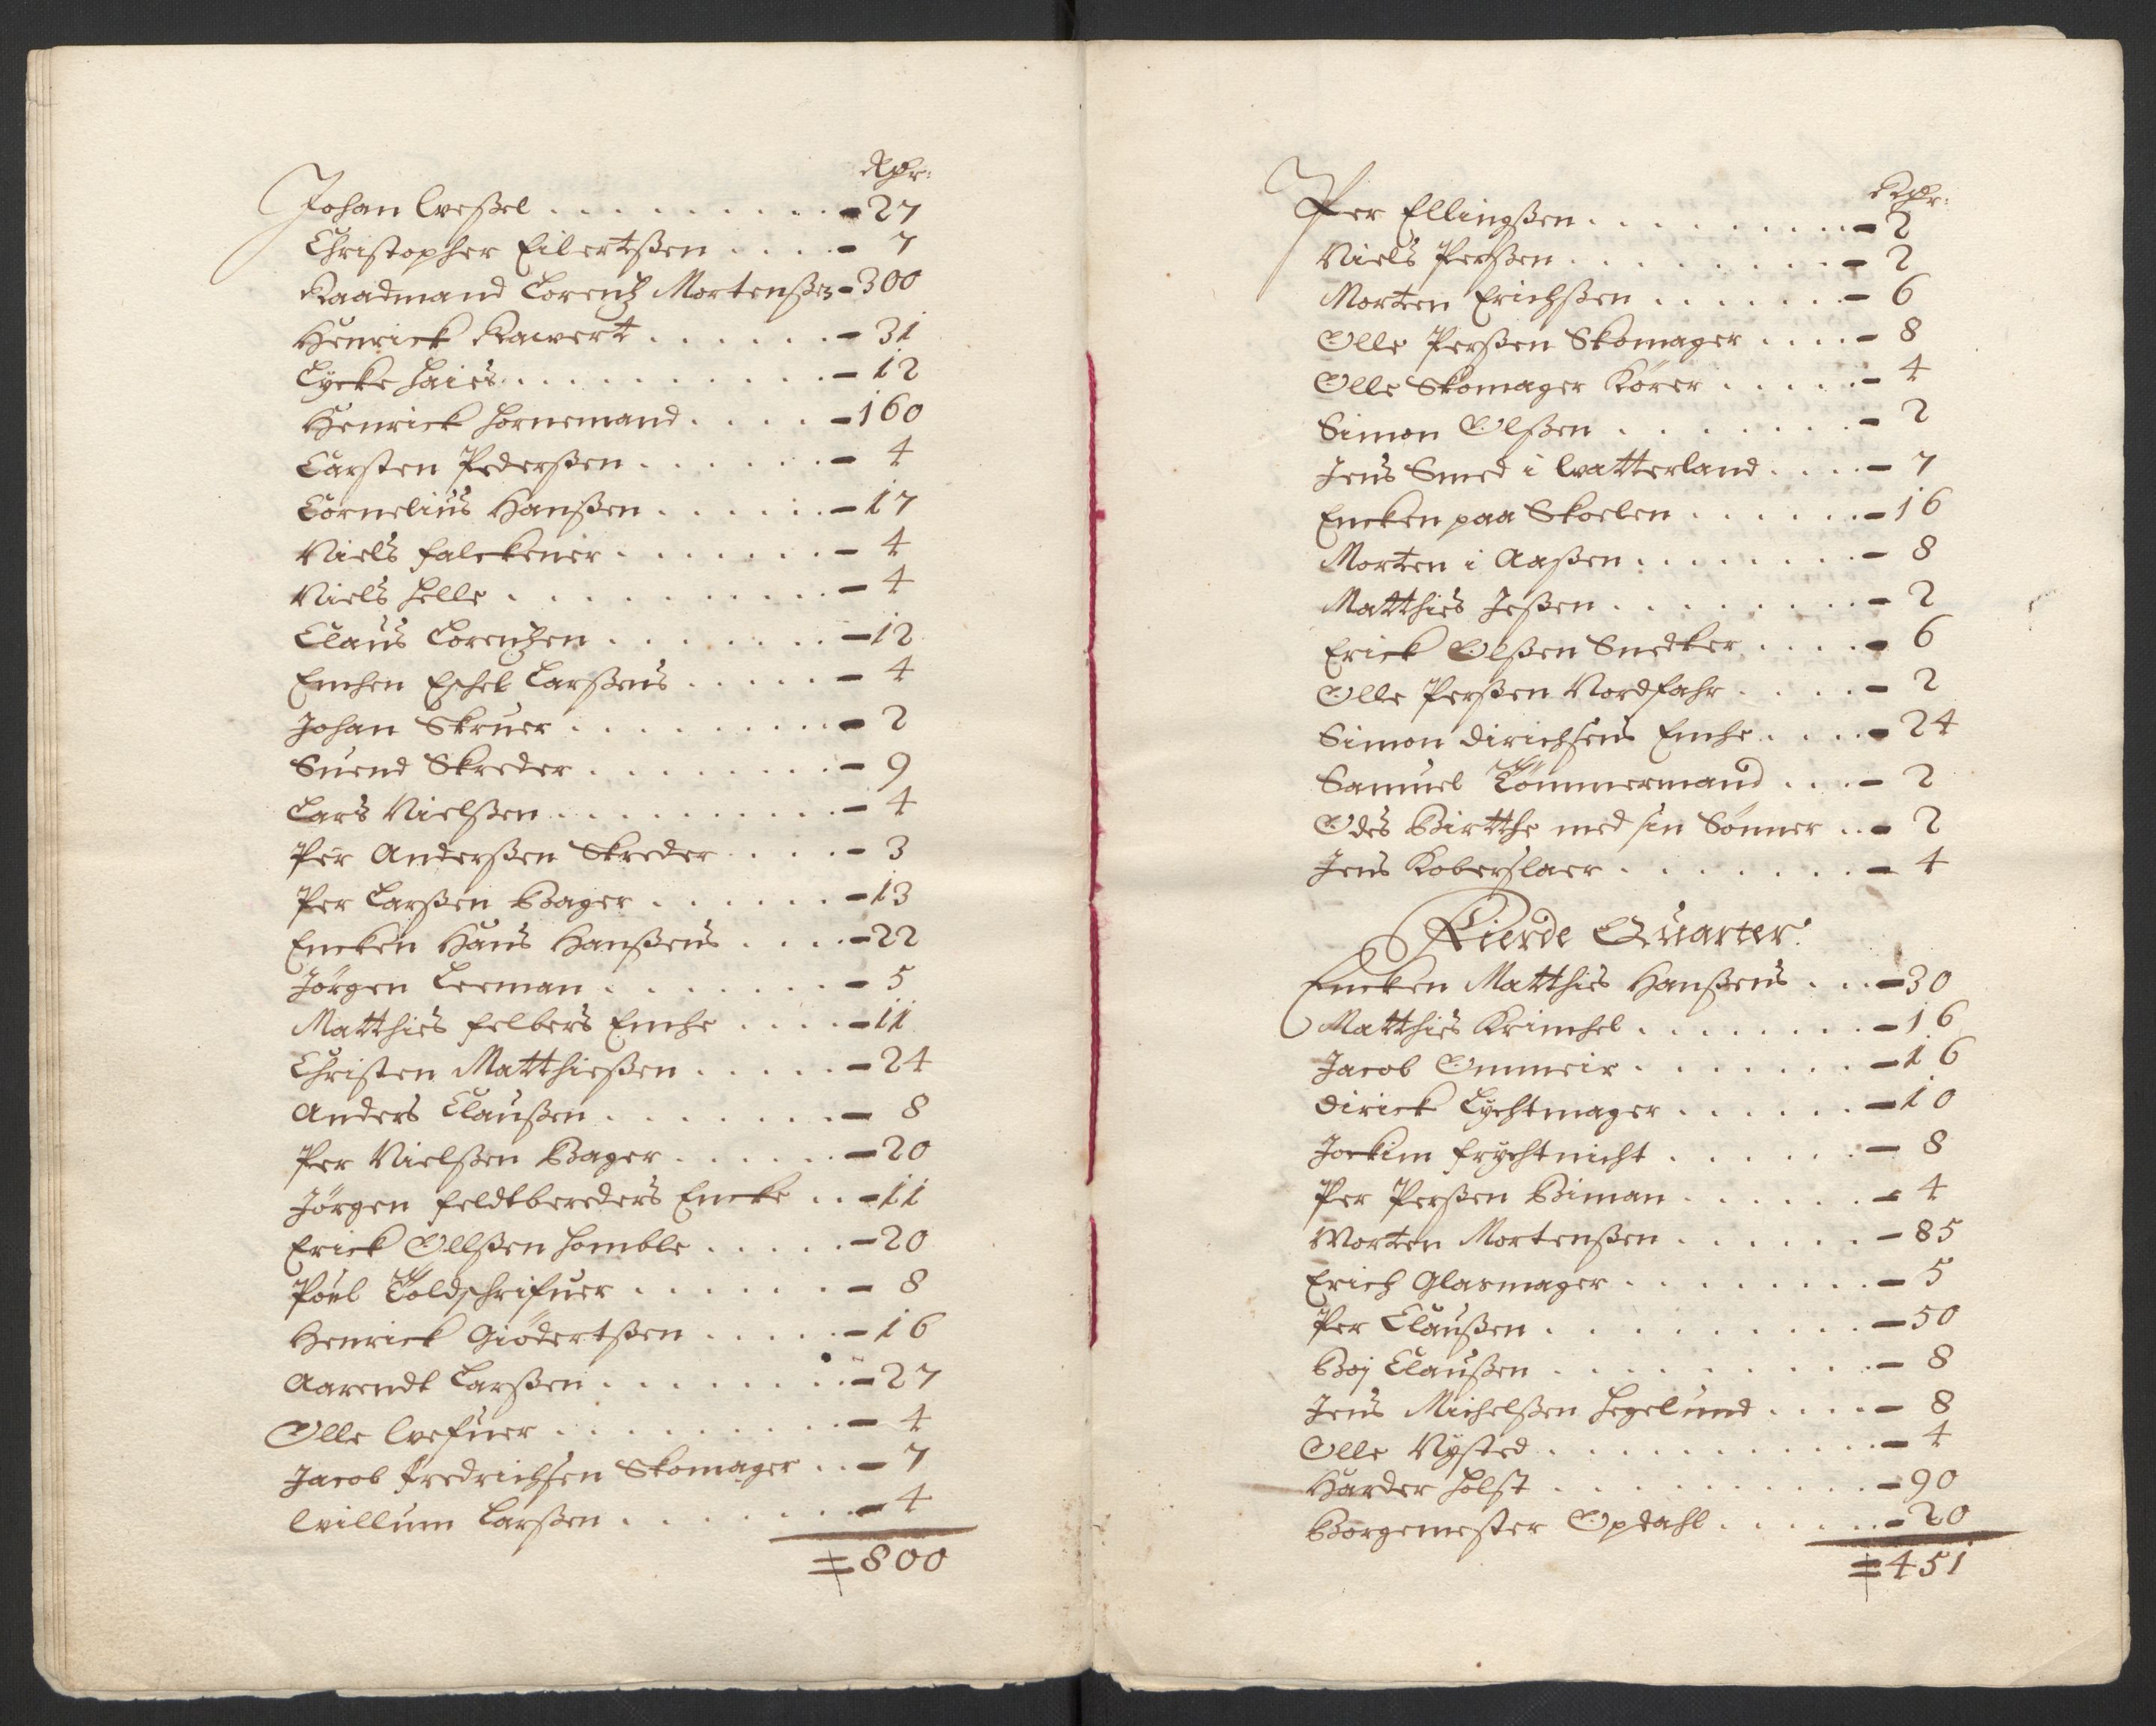 Rdr:
Johan Wessel . . . . . . . . . - 27
Christopher Eilertssen . . . . - 7
Raadmand Lorentz Mortenssen - 300
Henrick Kawert . . . . . . - 31
Lycke Haies . . . . . . . . . . - 12
Henrick Hornemand . . . . - 160
Carsten Pederssen . . . . . . - 4
Cornelius Hanssen . . . . . . - 17
Niels Falckener . . . . . . . - 4
Niels Helle . . . . . . . . . . - 4
Claus Lorentzen . . . . . . . - 12
Enchen Eschel Larssens . . . . . - 4
Johan Skruer . . . . . . . . - 2
Suend Skreder . . . . . . . . - 9
Lars Nielssen . . . . . . . . . . - 4
Per Anderssen Skreder . . . . - 3
Per Larssen Bager . . . . . . - 13
Encken Hans Hanssens . . . . - 22
Jörgen Leeman . . . . . . . - 5
Matthies Felbers Enche . . . . - 11
Christen Matthiessen . . . . . - 24
Anders Claussen . . . . . . . - 8
Per Nielssen Bager . . . . . . - 20
Jörgen Feldtbereders Encke . . - 11
Erick Ollssen Homble . . . . . - 20
Pöel Toldschrifuer . . . . . . - 8
Henrick Giödertssen . . . . . - 16
Aarendt Larssen . . . . . . . . - 27
Olle Wefuer . . . . . . . . . - 4
Jacob Fredrichsen Skomager . . - 7
Willum Larssen . . . . . . . - 4
= 800
Rdr:
Per Ellingssen . . . . . . . . . - 2
Niels Perssen . . . . . . . . - 2
Morten Erichssen . . . . . . . - 6
Olle Perssen Skomager . . . . - 8
Olle Skomager Körer . . . . . - 4
Simon Olssen . . . . . . . . - 2
Jens Smed i Watterland . . . . - 7
Encken paa Skoelen . . . . . . - 16
Morten i Aassen . . . . . . . . - 8
Matthies Jessen . . . . . . . . - 2
Erick Olssen Snedker . . . . - 6
Olle Perssen Nordfahr . . . . - 2
Simon Dirichsens Enche . . . . - 24
Samuel Tömmermand . . . - 2
Odes Birtthe med sin Sönner . . - 2
Jens Koberslaer . . . . . . . - 4
Fierde Quarter.
Encken Matthies Hanssens . . . - 30
Matthies Krimhel . . . . . . . - 16
Jacob Ommeir . . . . . . . - 16
Dirick Lychtmager . . . . . . - 10
Jockim Frychtnicht . . . . . . - 8
Per Perssen Biman . . . . . . - 4
Morten Mortenssen . . . . . . - 85
Erich Glasmager . . . . . . . . - 5
Per Claussen . . . . . . . . . . - 50
Boj Claussen . . . . . . . . . - 8
Jens Michelssen Hegelund . . . . - 8
Olle Nysted . . . . . . . . . . . - 4
Harder Holst . . . . . . . . . . - 90
Borgemester Opdahl . . . . . . - 20
= 451